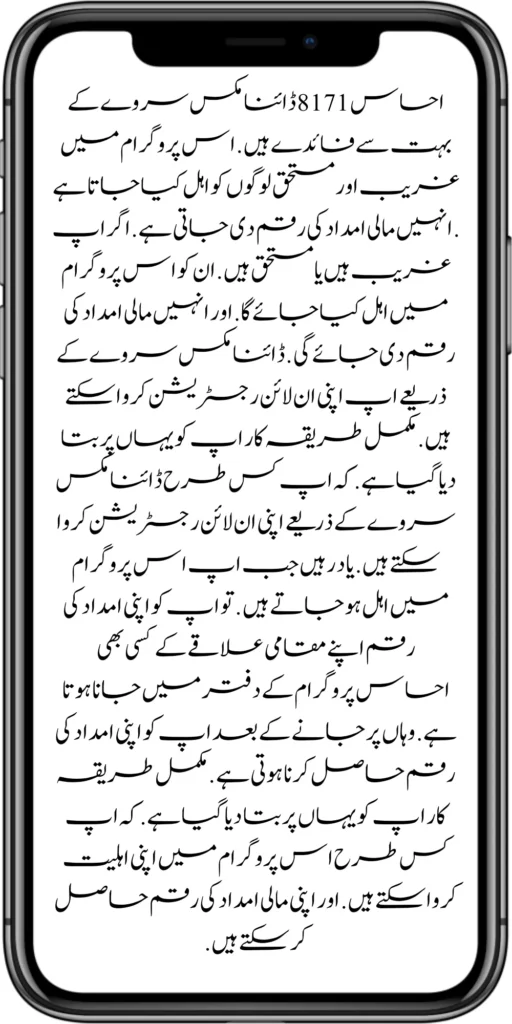 احساس 8171 ڈائنامکس سروے کے
بہت سے فائدے ہیں. اس پروگرام میں
غریب اور مستحق لوگوں کو اہل کیا جاتا ہے
.انہیں مالی امداد کی رقم دی جاتی ہے. اگر اپ
غریب ہیں یا مستحق ہیں. ان کو اس پروگرام
میں اہل کیا جائے گا. اور انہیں مالی امداد کی
رقم دی جائے گی. ڈائنامکس سروے کے
ذریعے اپ اپنی ان لائن رجسٹریشن کروا سکتے
ہیں. مکمل طریقہ کار اپ کو یہاں پر بتا
دیا گیا ہے. کہ اپ کس طرح ڈائنامکس
سروے کے ذریعے اپنی ان لائن رجسٹریشن کروا
سکتے ہیں. یاد رہیں جب اپ اس پروگرام
میں اہل ہو جاتے ہیں. تو اپ کو اپنی امداد کی
رقم اپنے مقامی علاقے کے کسی بھی
احساس پروگرام کے دفتر میں جانا ہوتا
ہے. وہاں پر جانے کے بعد اپ کو اپنی امداد کی
رقم حاصل کرنا ہوتی ہے. مکمل طریقہ
کار اپ کو یہاں پر بتا دیا گیا ہے. کہ اپ
کس طرح اس پروگرام میں اپنی اہلیت
کروا سکتے ہیں. اور اپنی مالی امداد کی رقم حاصل
کر سکتے ہیں.